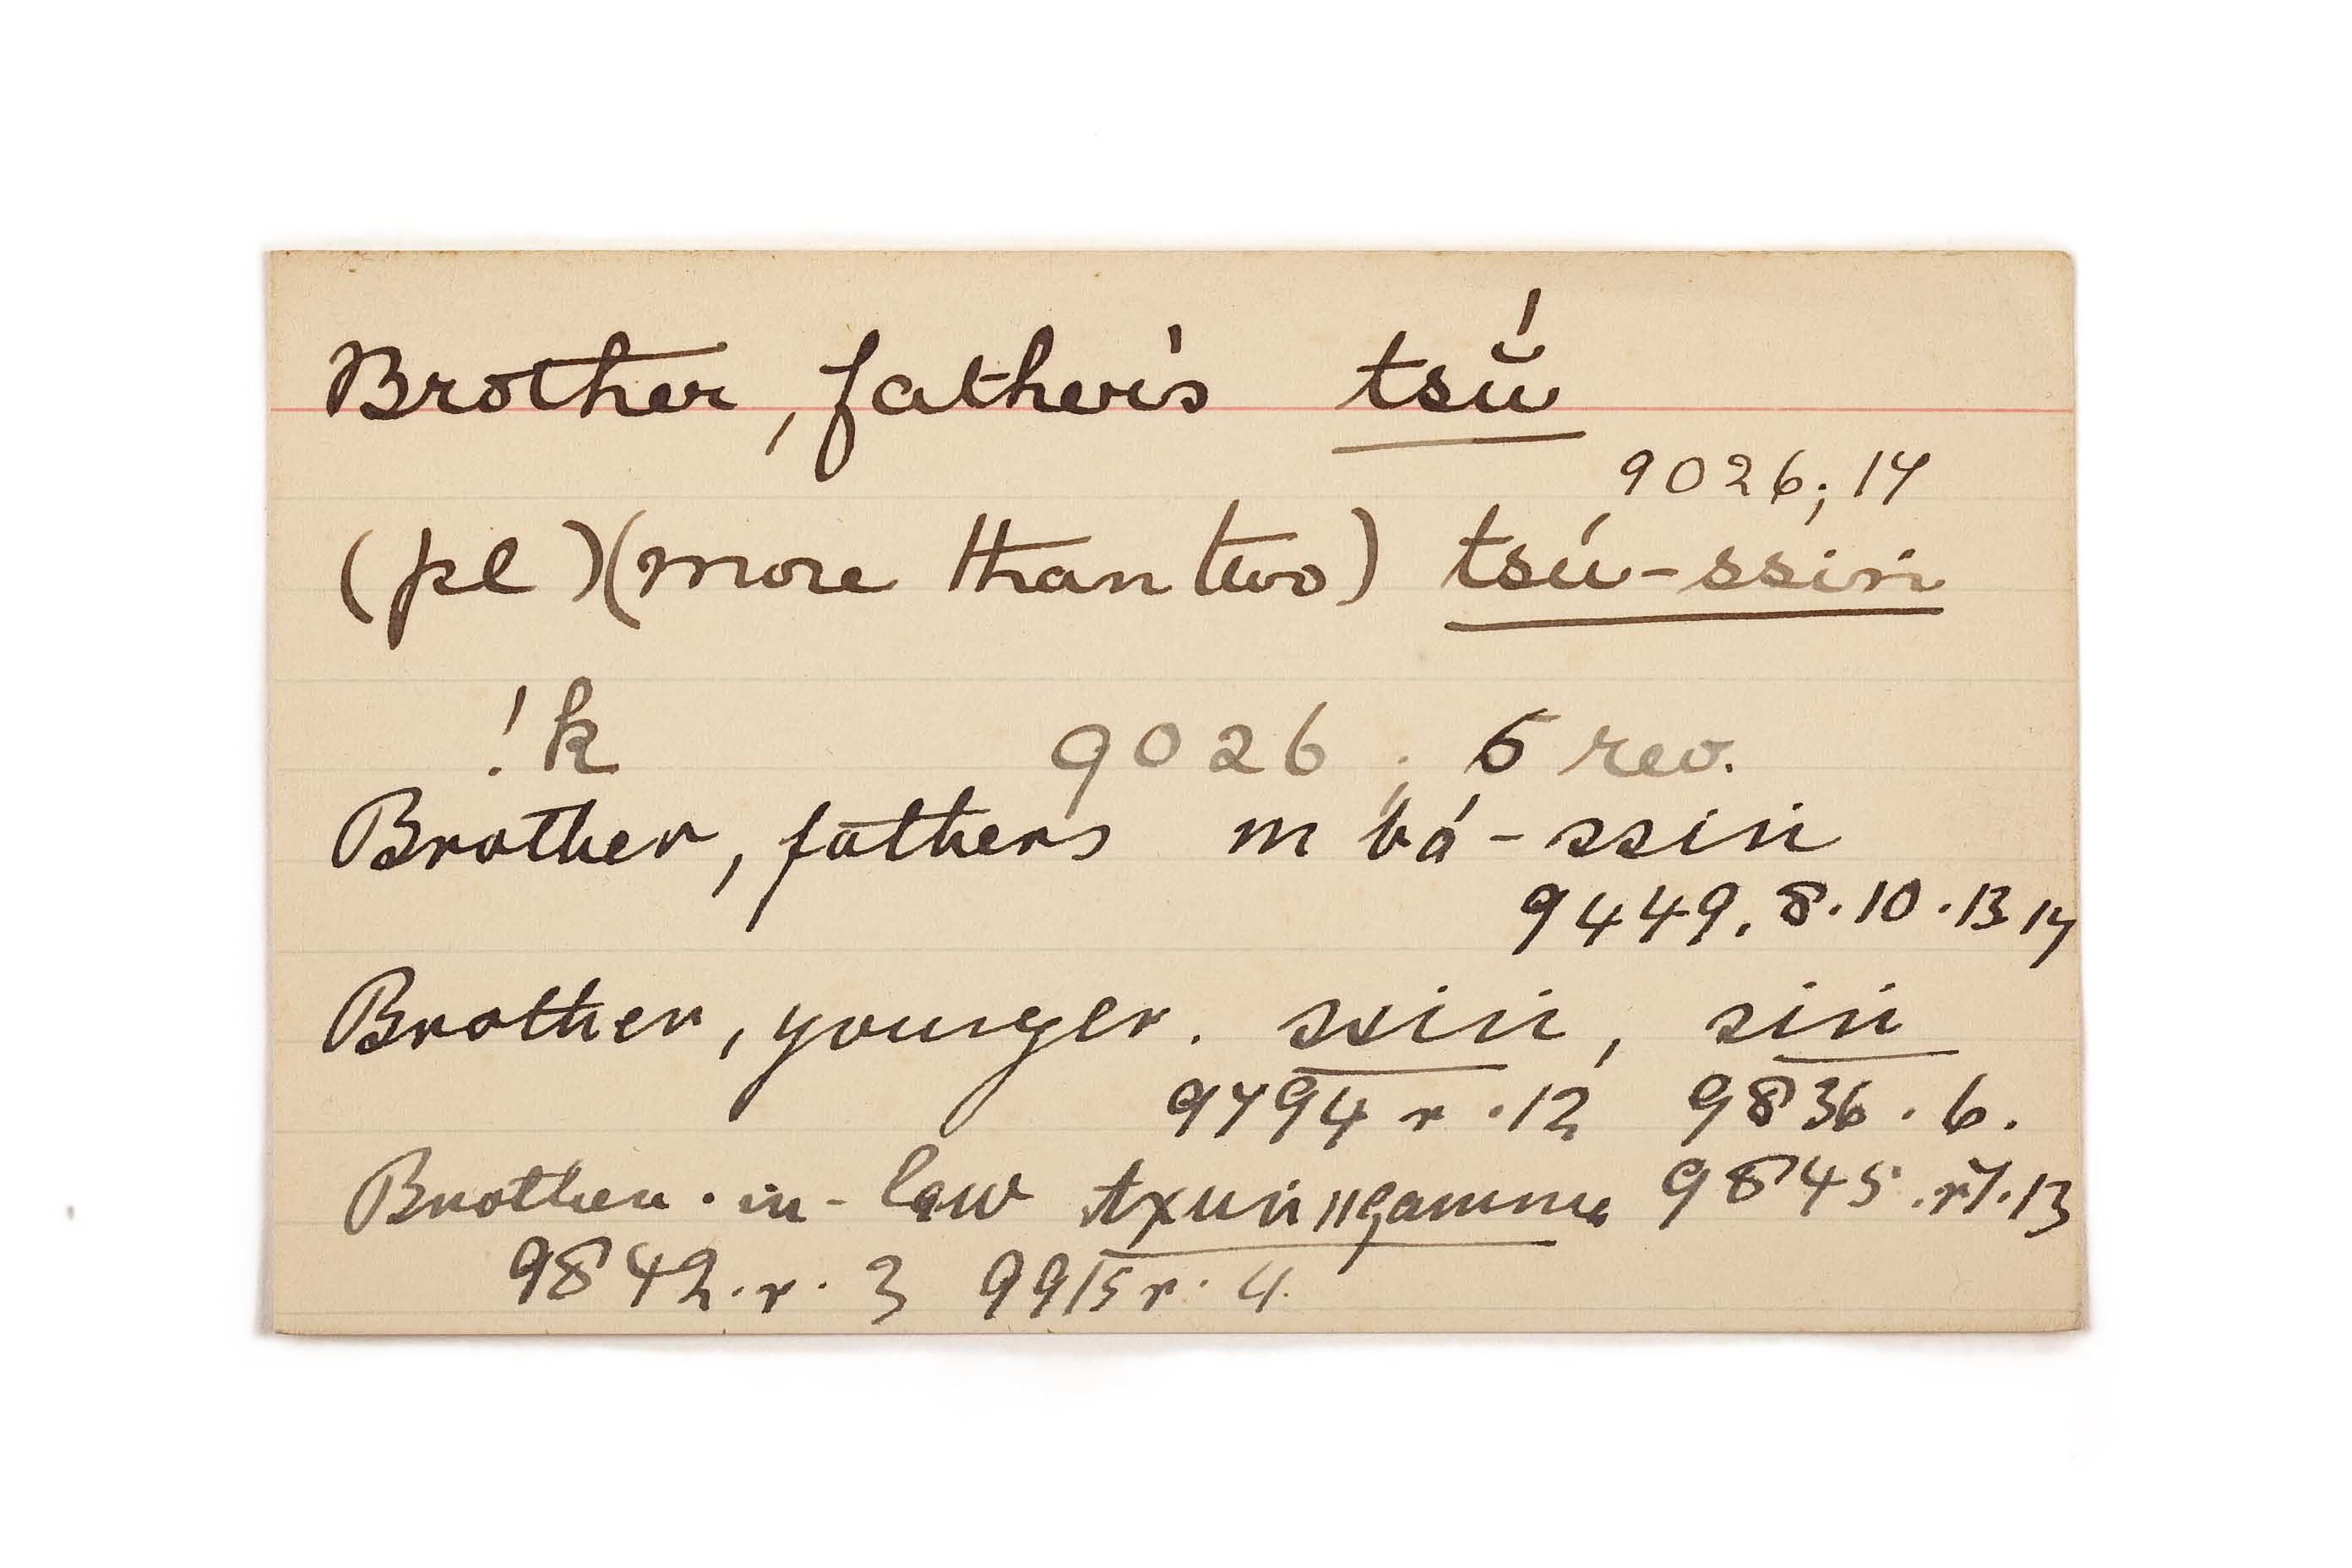 Brother, father's tsŭ́
9026; 14
(pl) (more than two) tsú-ssiṅ
!k 9026; 5 rev.
Brother, fathers m bá-ssiṅ
9449. 8. 10. 13 14
Brother, younger. ssiṅ, siṅ
9794 r. 12 9836. 6.
Brother-in-law 9845. 13
9842. r. 3 9915 r. 4.